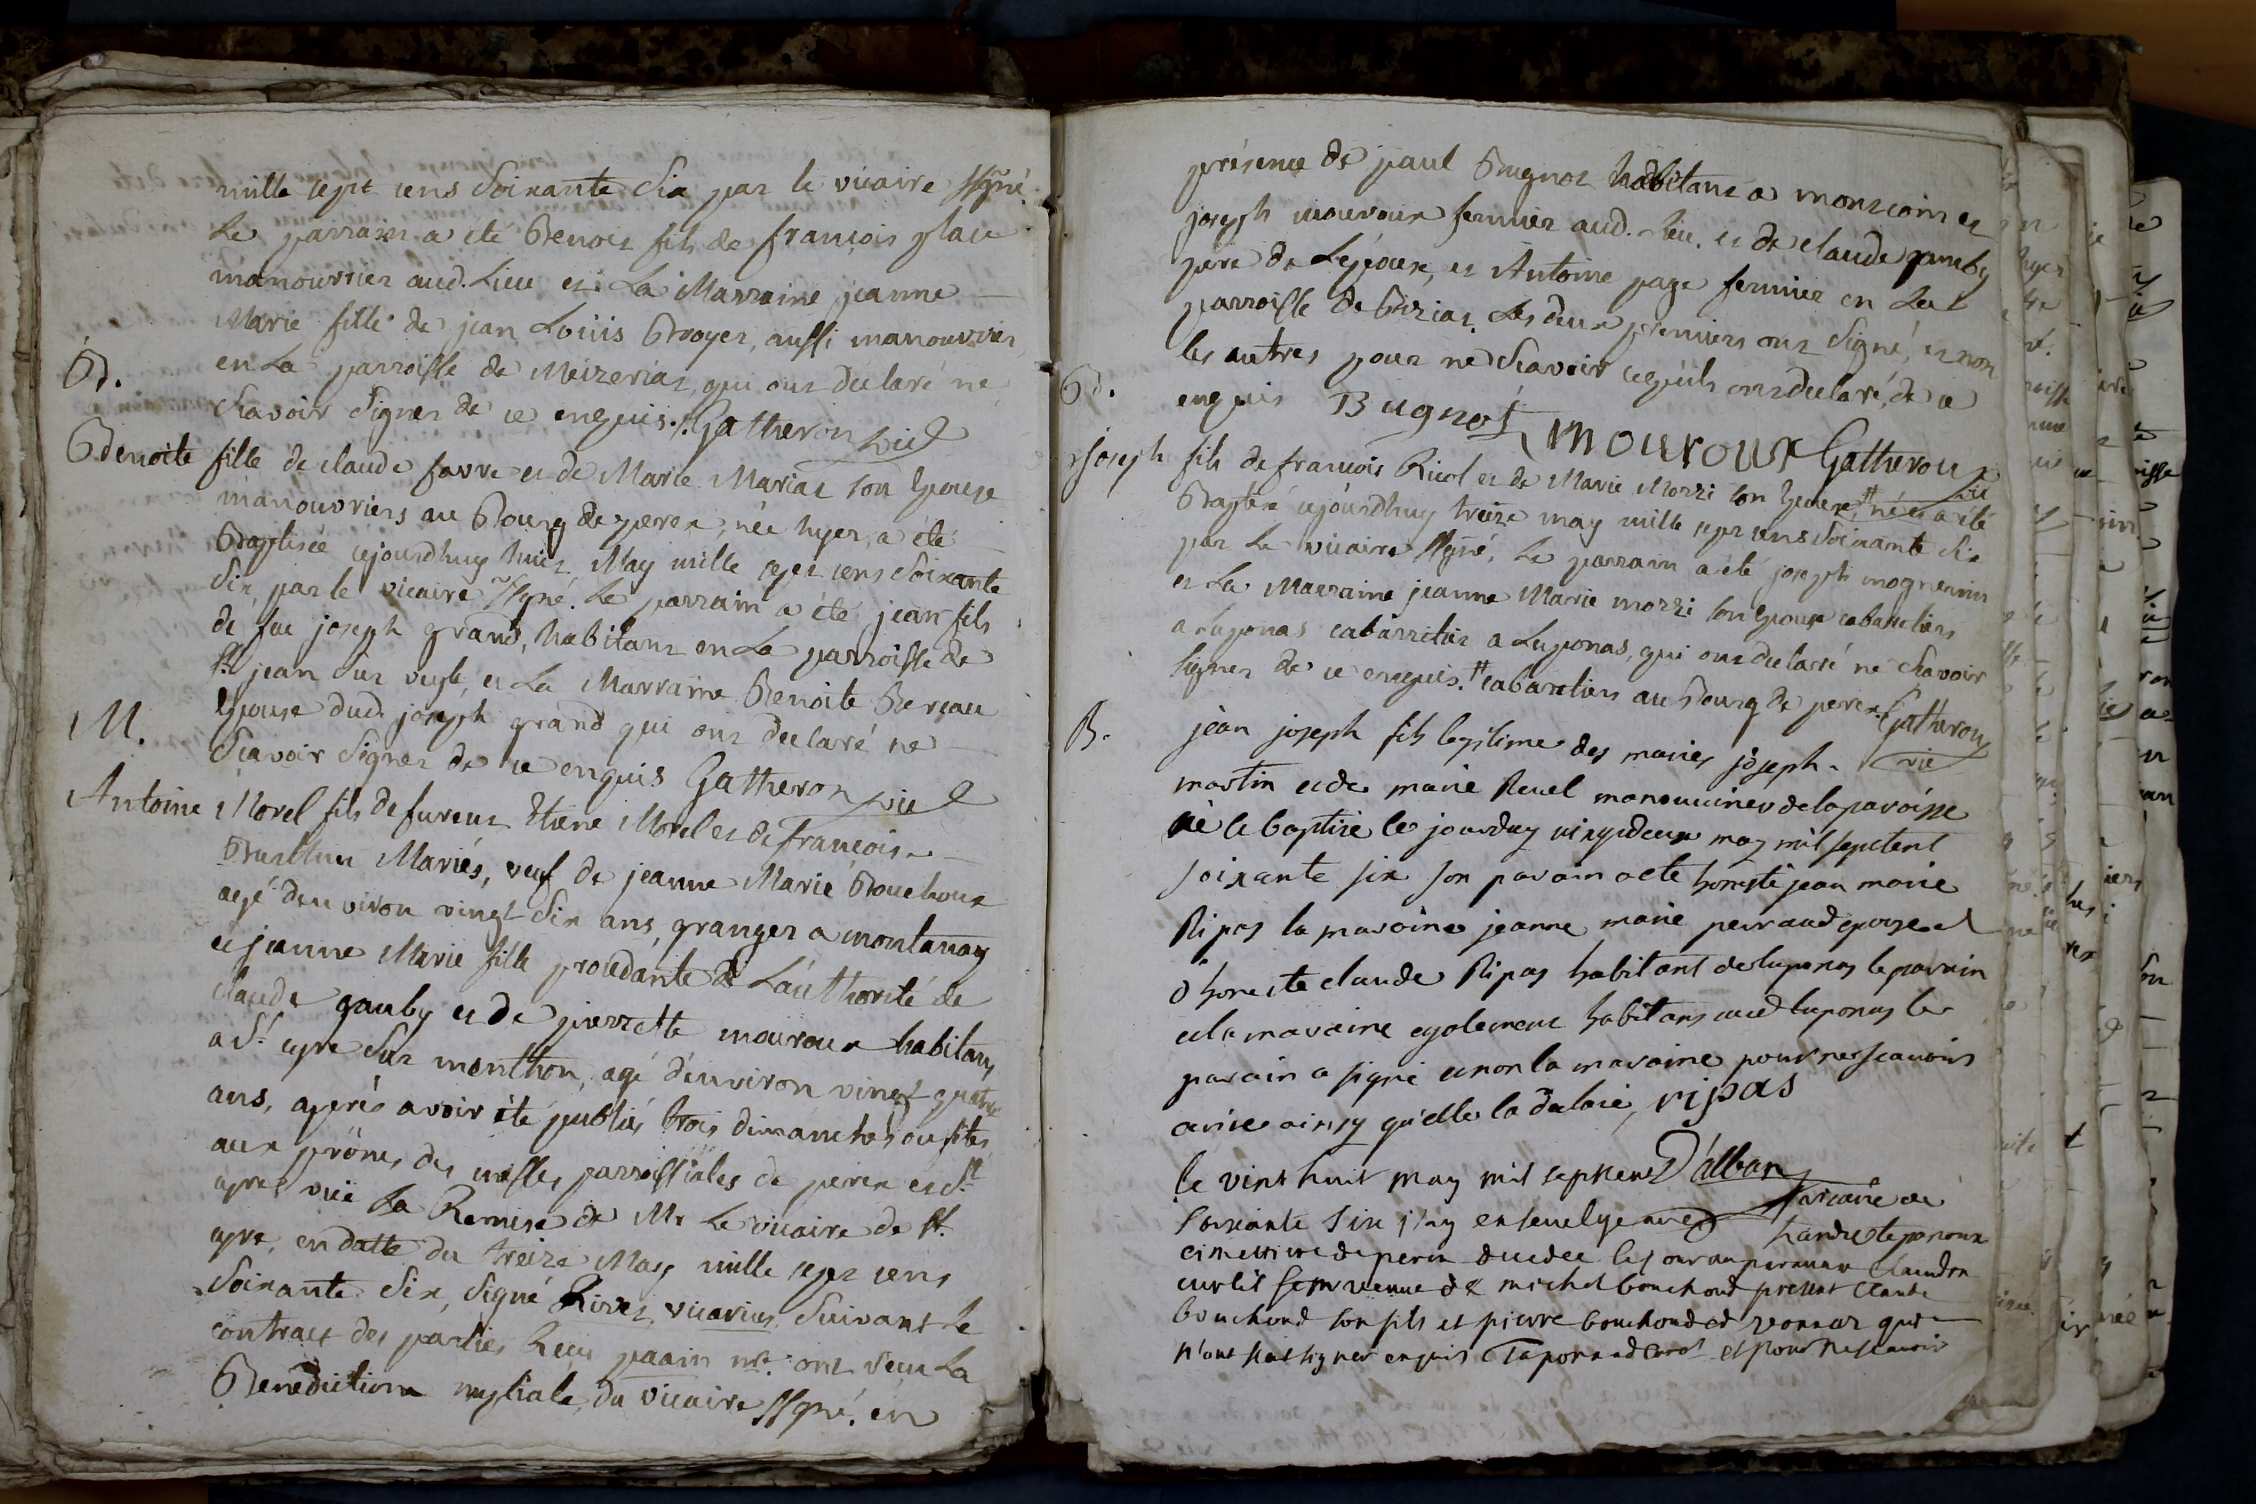 mille sept cens Soixante Six par le vicaire ssgné.
Le parrain a été Benoit fils de françois place
manouvrier aud. Lieu et La Marraine jeanne
Marie fille de jean Loüis Broyer, aussi manouvrier
en La parroisse de Meizeriat, qui ont declaré ne
Scavoir Signer de ce enquis ./. Gatheron vic
B.
Benoite fille de claude favre et de Marie Mariat son Epouse
manouvriers au Bourg de perex, née hyer, a été
Baptisée cejourdhuy huit May mille sept cens Soixante
Six, par le vicaire ssgné. Le parrain a été jean fils
de fue joseph grand, habitant en La parroisse de
St. jean sur veyle, et La Marraine Benoite Bereau
Epouse dud. joseph grand qui ont declaré ne
Scavoir Signer de ce enquis Gatheron vic
M.
Antoine Morel fils de furent Etiene Morel et de françoise
Mariés, veuf de jeanne Marie Bouchoux
agé denviron vingt Six ans, granger a montanay
et jeanne Marie fille procedante de L'authorité de
claude gauby et de pierrette mouroux habitans
a St. cyre Sur menthon, agé denviron vingt quatre
ans, aprés avoir été publiés trois dimanches ou fêtes
aux prônes des messes parroissiales de perex et St.
cyre vüe La Remise de Mr Le vicaire de St.
cyre, en datte du treize May mille sept cens
Soixante Six, Signé vicarius Suivant le
contract des parties Reçu paain nre. ont reçu La
Benediction nuptiale du vicaire ssgné. en
présence de paul Bugnot habitant a montcoin et
joseph mouroux fermier aud. Lieu. et de claude gauby
pere de Lépouse, et Antoine page fermier en La
parroisse de Biziat. Les deux premiers ont Signé, et non
les autres pour ne Scavoir ce qu'ils ont declaré, de ce
enquis Bugnot mouroux Gatheron vic
Bd.
joseph fils de françois Ricol et de Marie Morri son Epouse, # né et a été
Baptisé cejourdhuy treize may mille sept cens Soixante Six
par Le vicaire ssgné, Le parrain a été joseph mognenin
et La Marraine jeanne Marie morri son Epouse cabaretiers
a Luponas cabarretier a Luponas, qui ont declaré ne Scavoir
signer de ce enquis. # cabaretiers au Bourg de perex. Gatheron vic
B.
jean joseph fils legitime des maries joseph
martin et de marie Revel manouvriers de la paroisse
né et baptisé le jourduy vingtdeux may mil sept cent
soixante six son parain a eté honeste jean marie
Ripas la maraine jeanne marie perraud epouse
d'honeste claude Ripas habitant de luponas le parain
et la maraine egalement habitans aud luponas le
parain a signé et non la maraine pour ne scavoir
ecrire ainsy qu'elle la declaré, ripas
D'alban
le vint huit may mil sept cens
Soixante Six j'ay ensevelye
cimettiere de perex decedee le jour auparavant Claudon
veuve de michel bouchoud present Claude
bouchoud son fils et pierre bouchoud de vonnas qui
n'ont pas signer enquis Taponnad Curé et pour ne scavoir